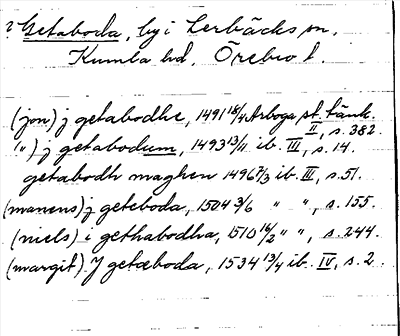 ? Getaboda, by i Lerbäcks sn,
Kumla hd, Örebro l.
(jon) j getabodhe, 1491 18/4 Arboga st. tänk.
II, s. 382.
(") j getabodum, 1493 13/11 ib. III, s. 14.
getabodh maghen 1496 7/3 ib. III, s. 51.
(manens) j geteboda, 1504 3/6 " ", s. 155.
(niels) i gethabodha, 1510 16/2 " ", s. 244.
(margit) J getæboda, 1534 13/4 ib. IV, s. 2.